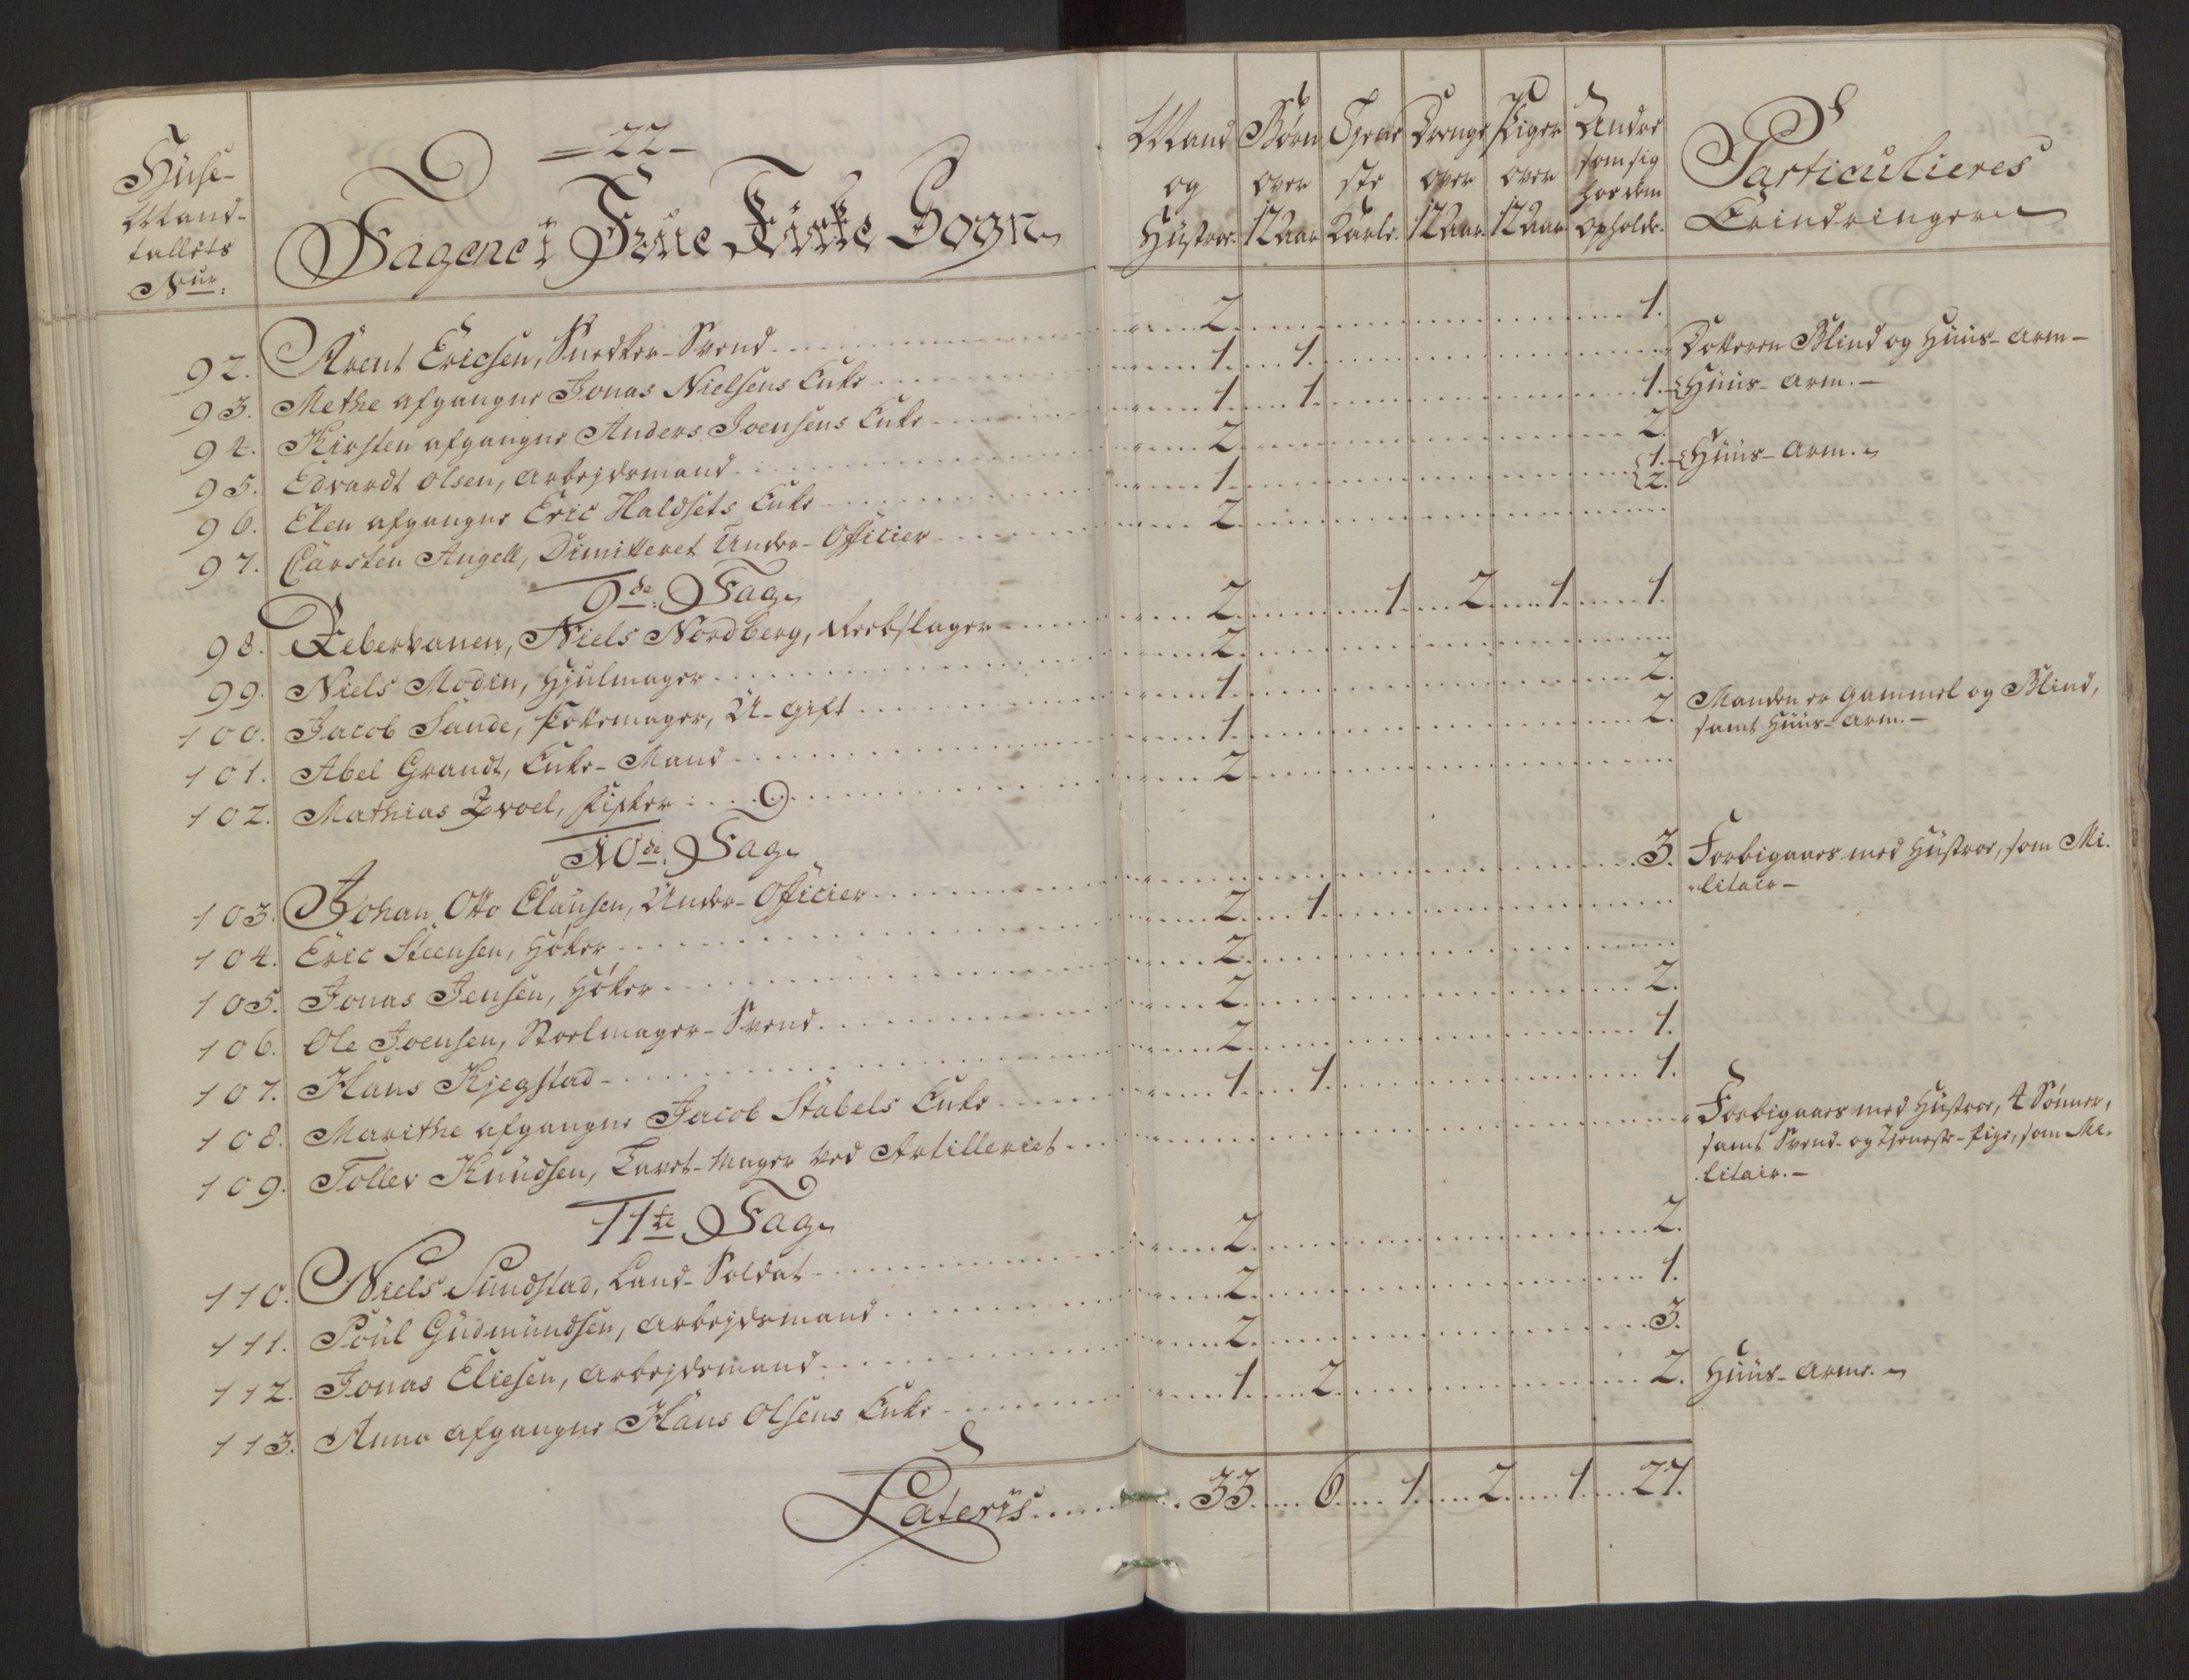 Huse-
Mand-
tallets
Nur:
=22-
Tagene i Frue Kirke Sogn
Mand og Hustroe.
Børn over 12 Aar
Tjene ste Karle.
Drenge over 12 Aar.
Piger over 12 Aar
Andre som sig hos dem opholde.
Particulieres Erindringer
92. Arent Ericsen, Snedker-Svend 2. 1.
93. Methe afgangne Jonas Nielsens Enke 1. 1. Dotteren Blind og Huus-arm-
94. Kirsten afgangne Anders Joensens Enke 1. 1. 1. Huus-arm.-
95. Edvardt Olsen, arbejdsmand 2. 2.
96. Elen afgangne Eric Haldsets Enke 1. 1. Huus-arm.
2.
97. Carsten Angell, Dimitteret Under-Officier 2.
9de Tag
98. Reberbanen, Niels Nordberg, Reebslager 2. 1. 2. 1. 1.
99. Niels Modin, Hjulmager 2.
100. Jacob Sande, Pottemager, U-gift 1. 2.
101. Abel Grandt, Enke-Mand 1. 2. Manden er gammel og Blind,
samt Huus-arm.-
102. Mathias Zwoel, Fisker 2.
10de Tag
103. Johan Otto Clausen, Under-Officier 3. Forbigaaes med Hustroe, som Mi-
litair-
104. Eric Steensen, Høker 2. 1.
105. Jonas Jensen, Høker 2.
106. Ole Joensen, Stoelmager-Svend 2. 2.
107. Hans Kjegstad 2. 1.
108. Marithe afgangne Jacob Stabels Enke 1. 1. 1.
109. Tollev Knudsen, Lavet-Mager ved Artilleriet Forbigaaes med Hustroe, 4 Sønner,
samt Svend- og Tjeneste-Pige, som Mi-
litair.-
11te Tag
110. Niels Sundstad, Land-Soldat 2. 2.
111. Poul Gudmundsen, arbejdsmand 2. 1.
112. Jonas Eliesen, arbejdsmand 2. 3.
113. Anna afgangne Hans Olsens Enke 1. 2. 2. Huus-arme.
Lateris 33. 6. 1. 2. 1. 27.